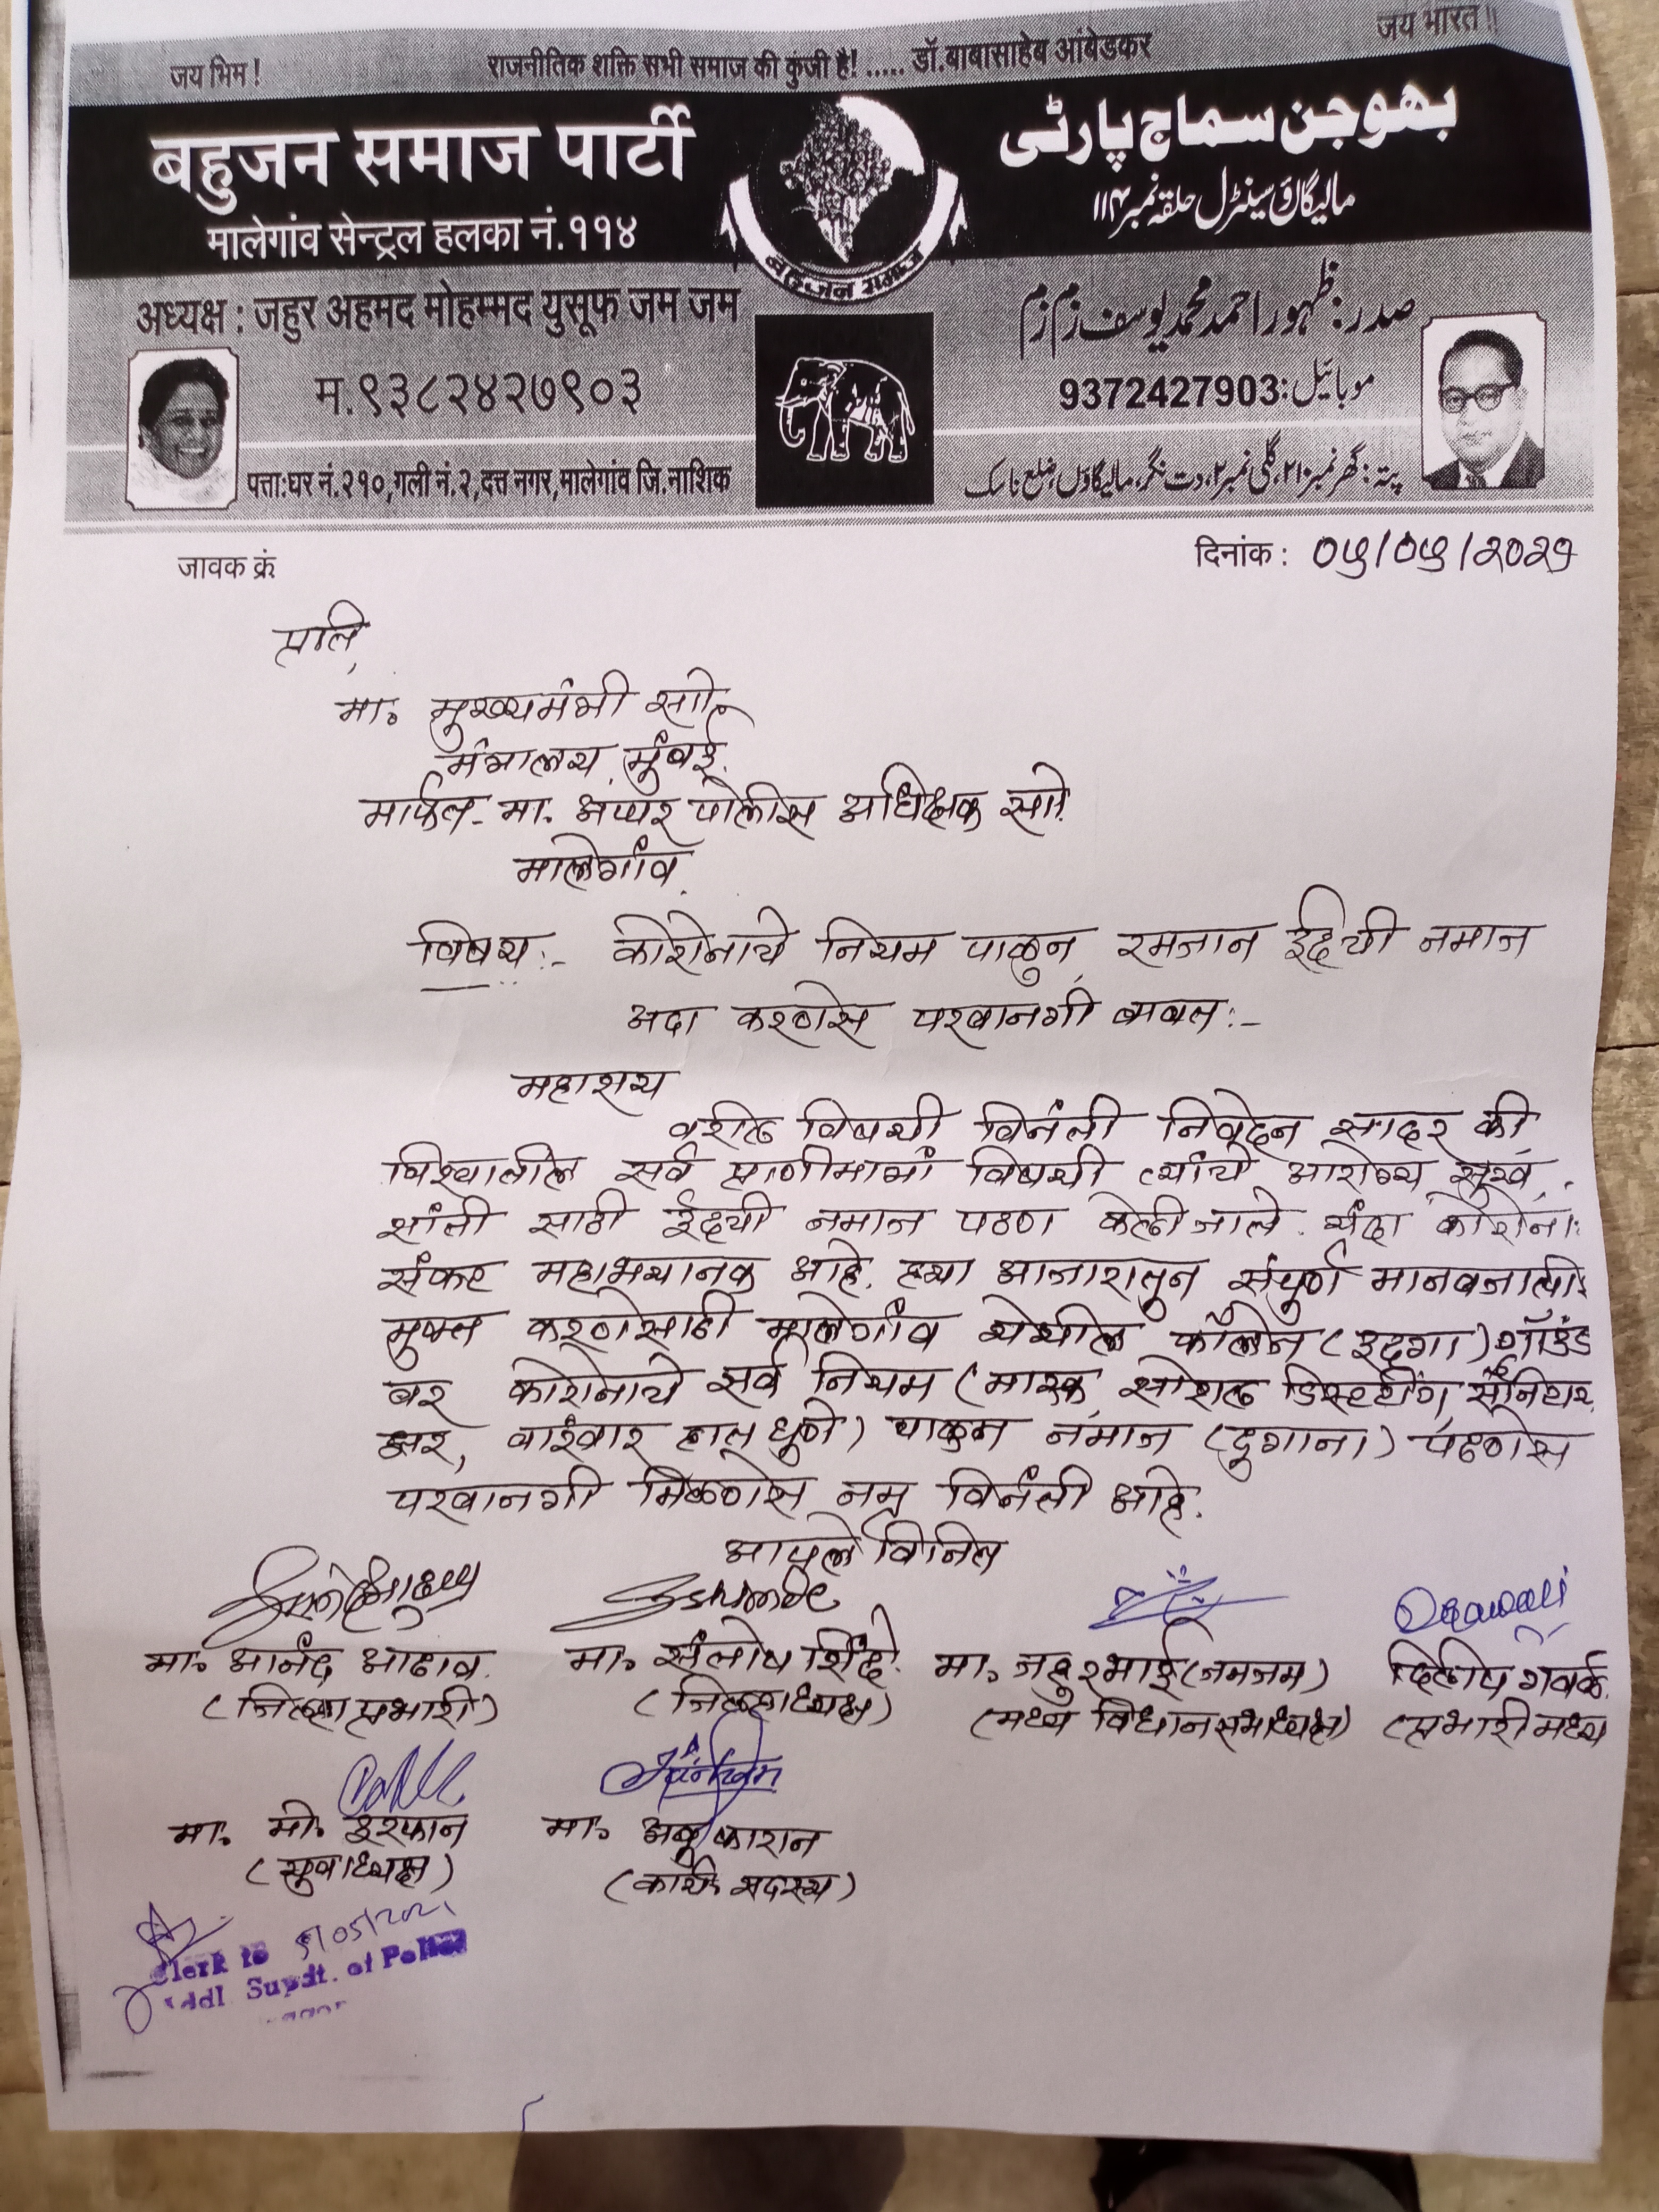 जय भिम !
राजनीतिक शक्ति सभी समाज की कुंजी है! ..... डॉ.बाबासाहेब आंबेडकर
जय भारत !!
बहुजन समाज पार्टी
بھوجن سماج پارٹی
मालेगांव सेन्ट्रल हलका नं.११४
مالیگاؤں سینٹرل حلقہ نمبر ۱۱۴
बहुजन समाज
अध्यक्ष : जहुर अहमद मोहम्मद युसूफ जम जम
صدر: ظہور احمد محمد یوسف زم زم
म.९३८२४२७९०३
موبائیل: 9372427903
पत्ता:घर नं.२१०,गली नं.२,दत्त नगर,मालेगांव जि.नाशिक
پتہ: گھر نمبر ۲۱۰، گلی نمبر ۲، دت نگر، مالیگاؤں، ضلع ناسک
जावक क्रं
दिनांक : ०५/०५/२०२१
प्रति,
मा. मुख्यमंत्री सो
मंत्रालय मुंबई.
मार्फत- मा. अप्पर पोलीस अधिक्षक सो.
मालेगांव.
विषय :- कोरोनाचे नियम पाळुन रमजान ईदची नमाज
अदा करणेस परवानगी बाबत :-
महाशय
वरील विषयी विनंती निवेदन सादर की,
विश्वातील सर्व प्राणीमात्रां विषयी त्यांचे आरोग्य सुख,
शांती साठी ईदची नमाज पठण केली जाते. यंदा कोरोना
संकट महाभयानक आहे. ह्या आजारातुन संपुर्ण मानवजाती
मुक्त करणेसाठी मालेगांव येथील कॉलेज (इदगा) ग्रॉउंड
वर कोरोनाचे सर्व नियम (मास्क, सोशल डिस्टन्सिंग, सॅनिटाय
झर, वारंवार हात धुणे) पाळुन नमाज (दुगाना) पढणेस
परवानगी मिळणेस नम्र विनंती आहे.
आपले विनित
मा. आनंद आढाव.
मा. संतोष शिंदे.
मा. जहुरभाई (जमजम)
दिलीप गवळे.
(जिल्हा प्रभारी)
(जिल्हाध्यक्ष)
(मध्य विधानसभाध्यक्ष)
(प्रभारी मध्य
मा. मो. इरफान
मा. अबू काशन
(युवाध्यक्ष)
(कार्य. सदस्य)
5/05/2021
Clerk to
Addl Supdt. of Police